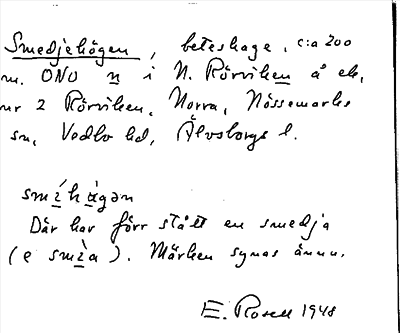 Smedjehögen, beteshage, c:a 200
m. ONO n i N. Rörviken å ek,
nr 2 Rörviken, Norra, Nössemarks
sn, Vedbo hd, Älvsborgs l.
smíhàgən
Där har förr stått en smedja
(e smìa). Märken synas ännu.
E. Rosell 1948